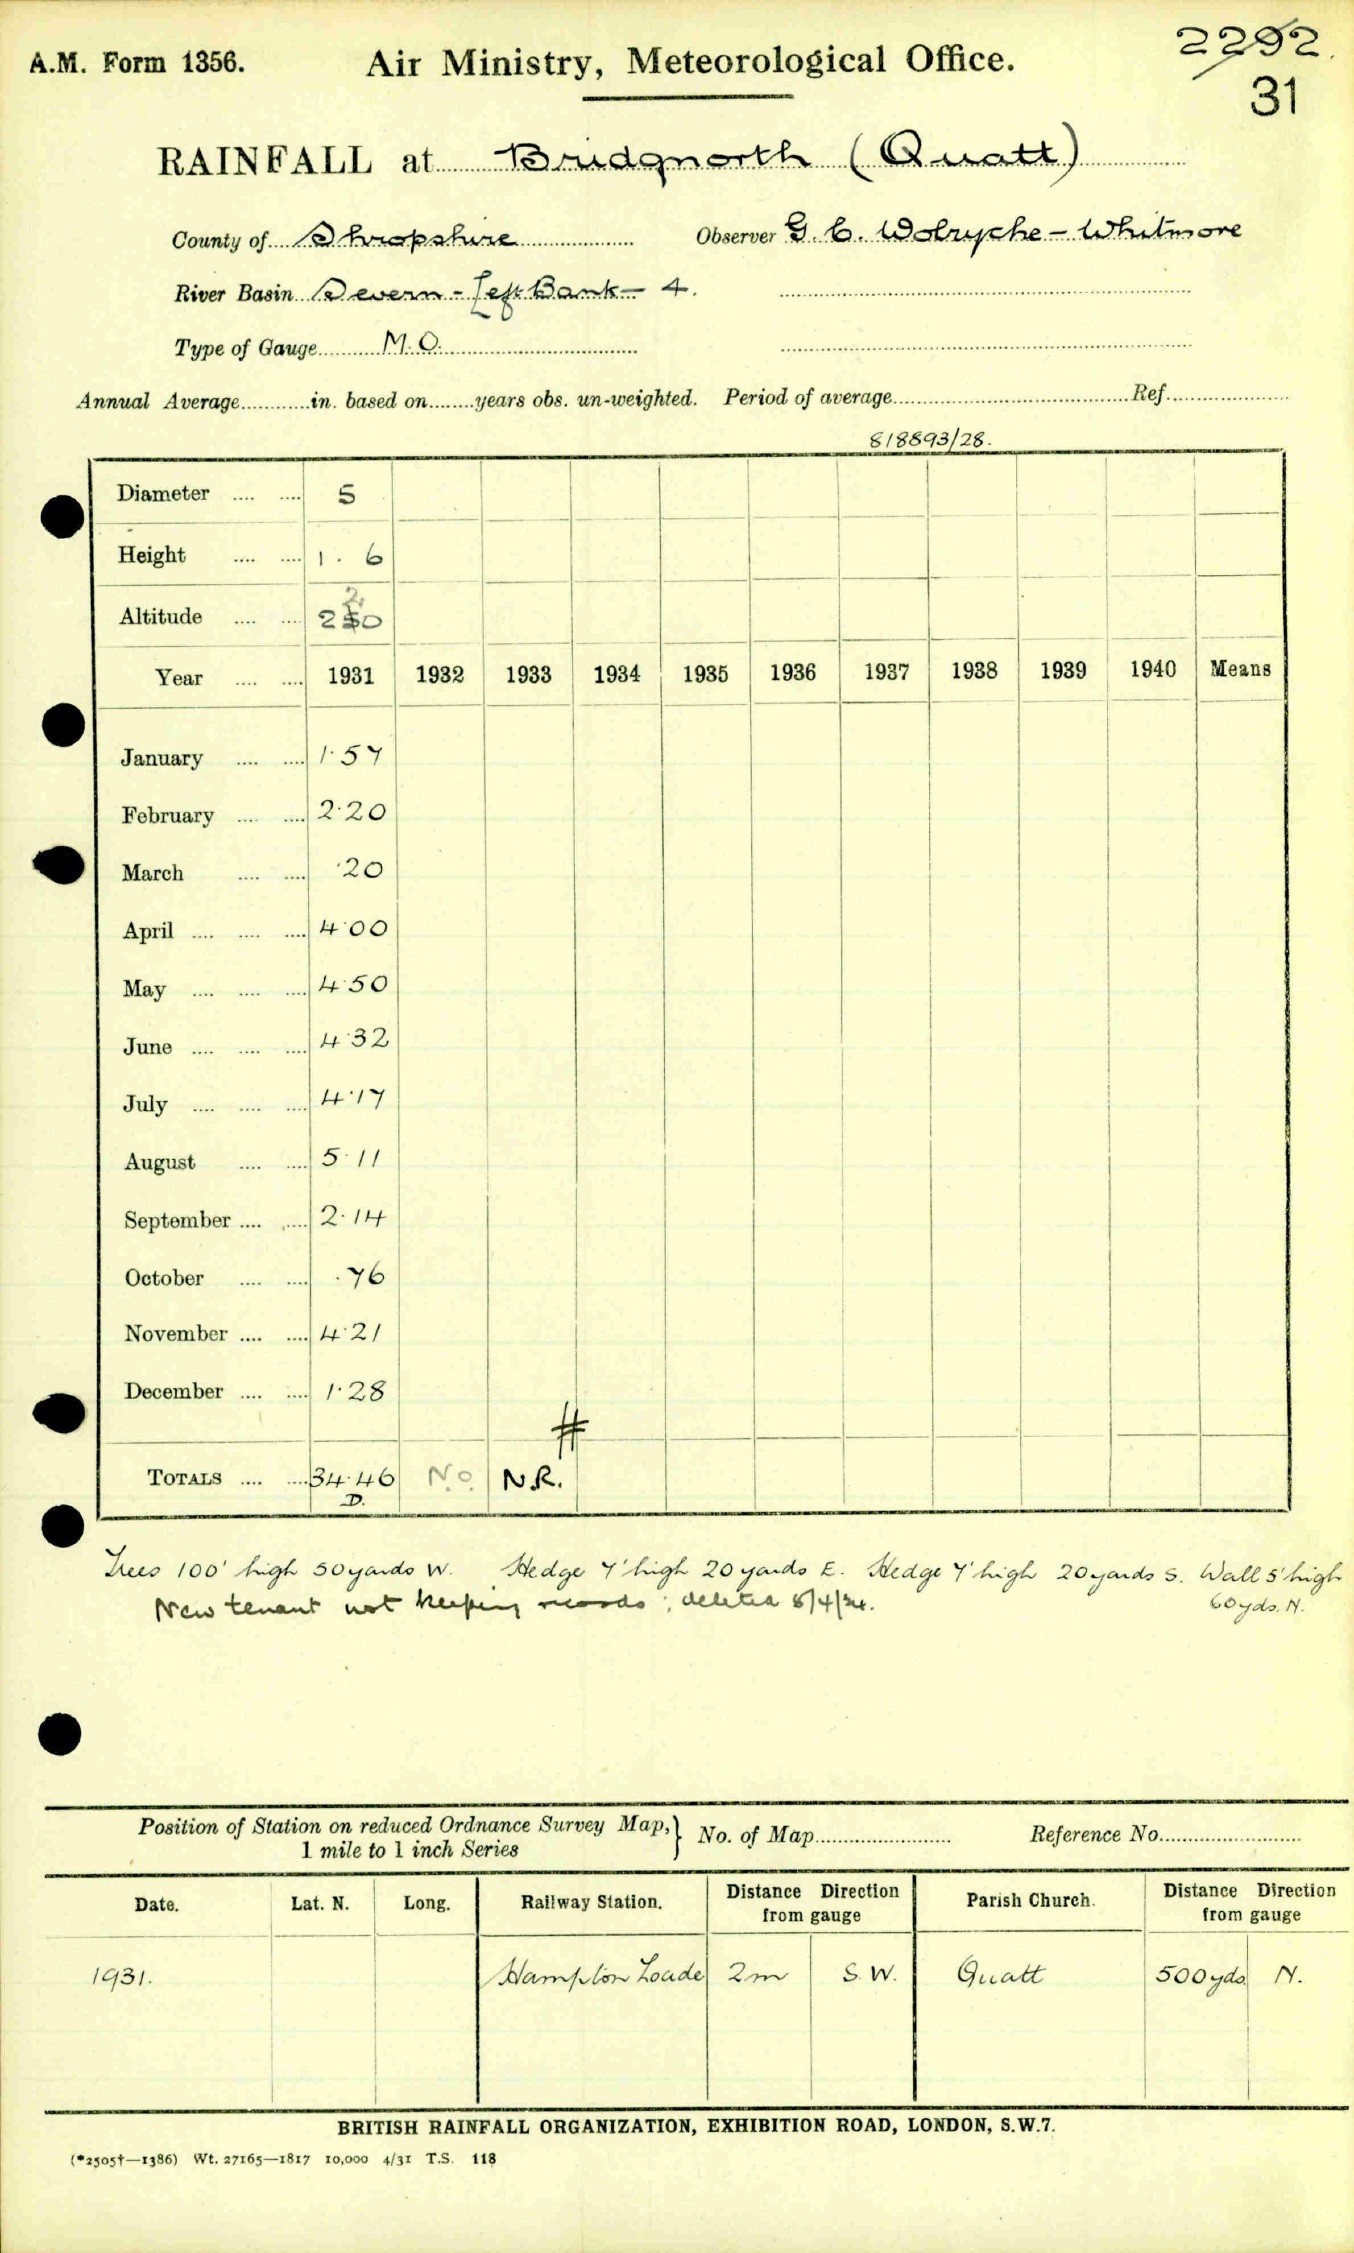 A.M. Form 1356. Air Ministry, Meteorological Office. 2292
31
RAINFALL at Bridgnorth (Quatt)
County of Shropshire Observer G. C. Wolryche-Whitmore
River Basin Severn - Left Bank - 4.
Type of Gauge M.O.
Annual Average in. based on years obs. un-weighted. Period of average Ref.
818893/28.
Diameter 5
Height 1. 6
Altitude 250 2
Year 1931 1932 1933 1934 1935 1936 1937 1938 1939 1940 Means
January 1.57
February 2.20
March .20
April 4.00
May 4.50
June 4.32
July 4.17
August 5.11
September 2.14
October .76
November 4.21
December 1.28
#
TOTALS 34.46 No. N.R.
D.
Trees 100' high 50 yards W. Hedge 7' high 20 yards E. Hedge 7' high 20 yards S. Wall 5' high
60 yds. N.
New tenant not keeping records; deleted 8/4/34.
Position of Station on reduced Ordnance Survey Map, } No. of Map Reference No.
1 mile to 1 inch Series
Date. Lat. N. Long. Railway Station. Distance Direction from gauge Parish Church. Distance Direction from gauge
1931. Hampton Loade 2m S.W. Quatt 500yds N.
BRITISH RAINFALL ORGANIZATION, EXHIBITION ROAD, LONDON, S.W.7.
(*2505†—1386) Wt. 27165—1817 10,000 4/31 T.S. 118